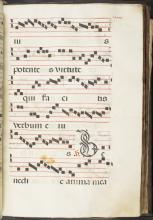 ius
potentes virtute
qui facitis
verbum eius
s. B
nedic anima mea